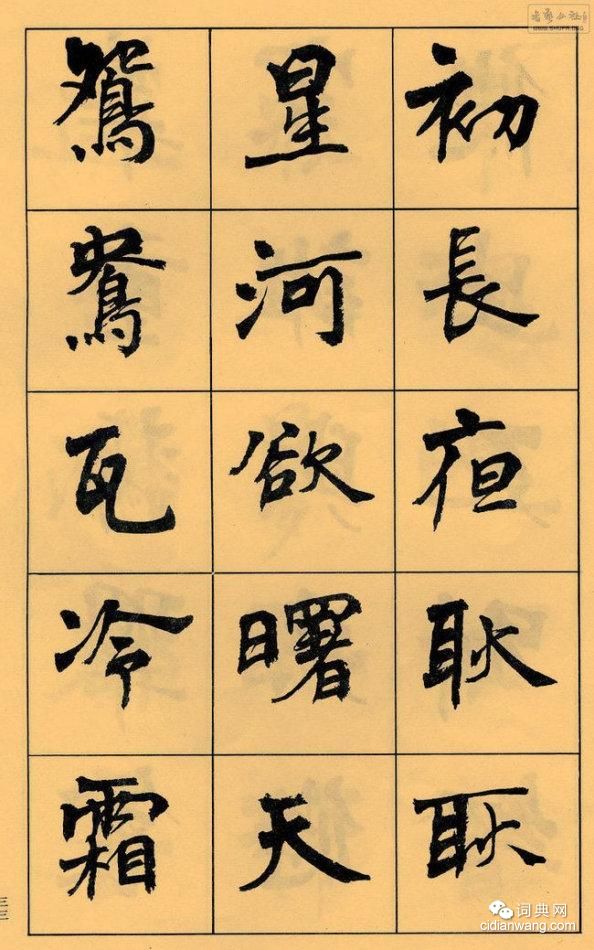 初長夜耿耿
星河欲曙天
鴛鴦瓦冷霜
三三
词典网
cidianwang.com
WWW.SHUFA.ORG